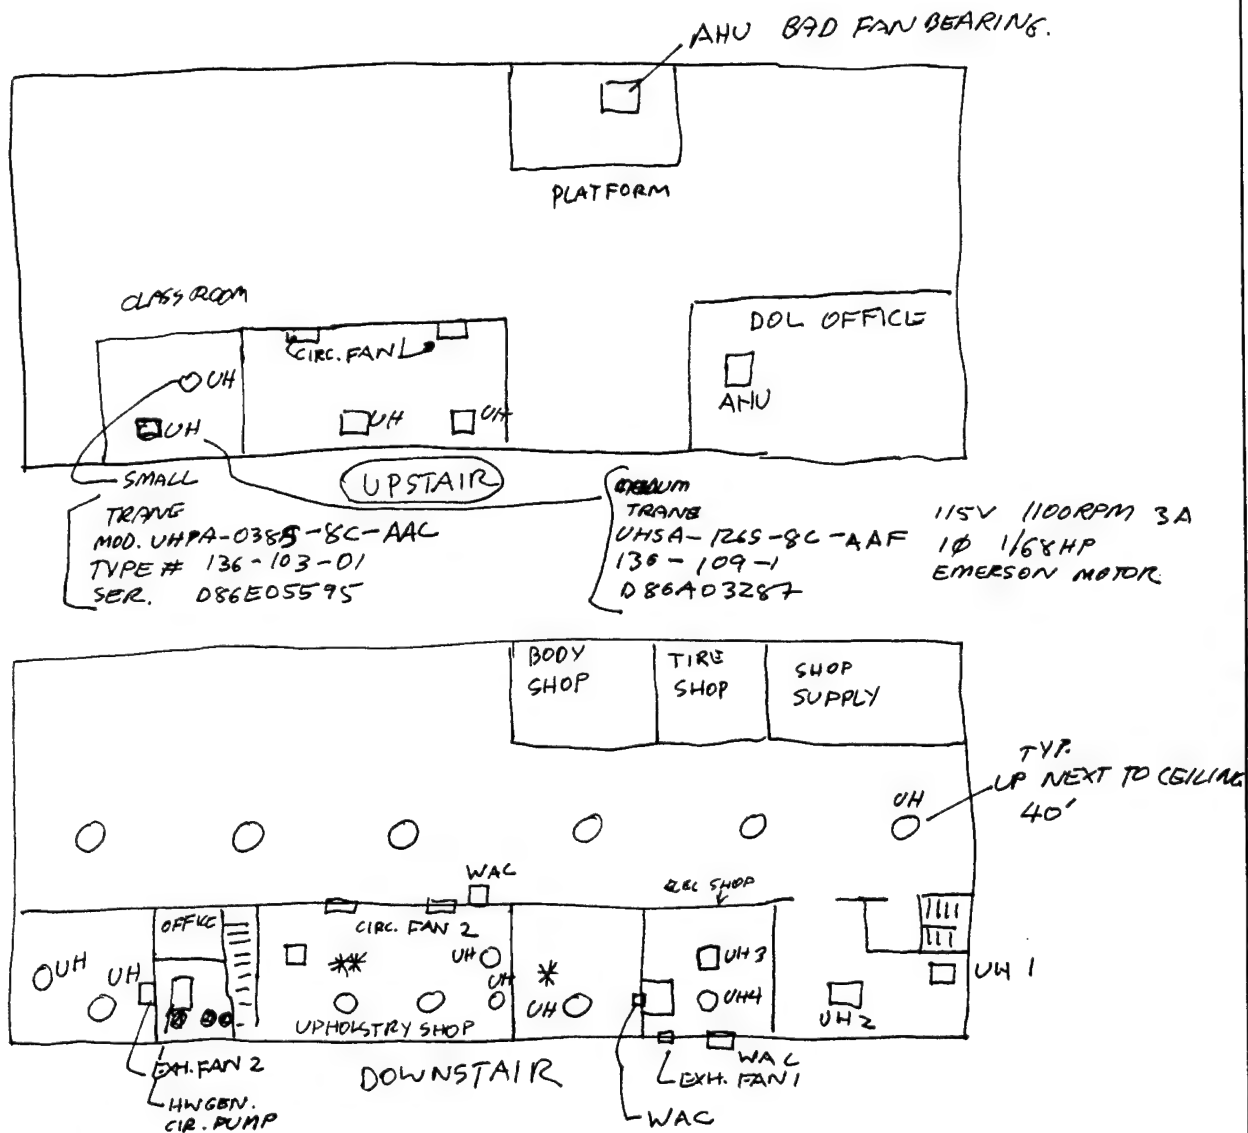 AHU BAD FAN BEARING.
PLATFORM
CLASSROOM
CIRC. FAN
DOL OFFICE
UH
AHU
UH
UH
UH
SMALL
UPSTAIR
TRANE
MOD. UHPA-038S-8C-AAC
TYPE # 136-103-01
SER. D86E05595
TRANE
UHSA-126S-8C-AAF
136-109-1
D86A03287
115V 1100RPM 3A
1Ø 1/68HP
EMERSON MOTOR
BODY
SHOP
TIRE
SHOP
SHOP
SUPPLY
TYP.
UP NEXT TO CEILING
40'
UH
WAC
SHOP
OFFICE
CIRC. FAN 2
UH
UH
UH
UH 3
UH 1
UH
UH
UH4
UH 2
UPHOLSTRY SHOP
EXH. FAN 2
DOWNSTAIR
WAC
EXH. FAN 1
HWGEN.
CIR. PUMP
WAC